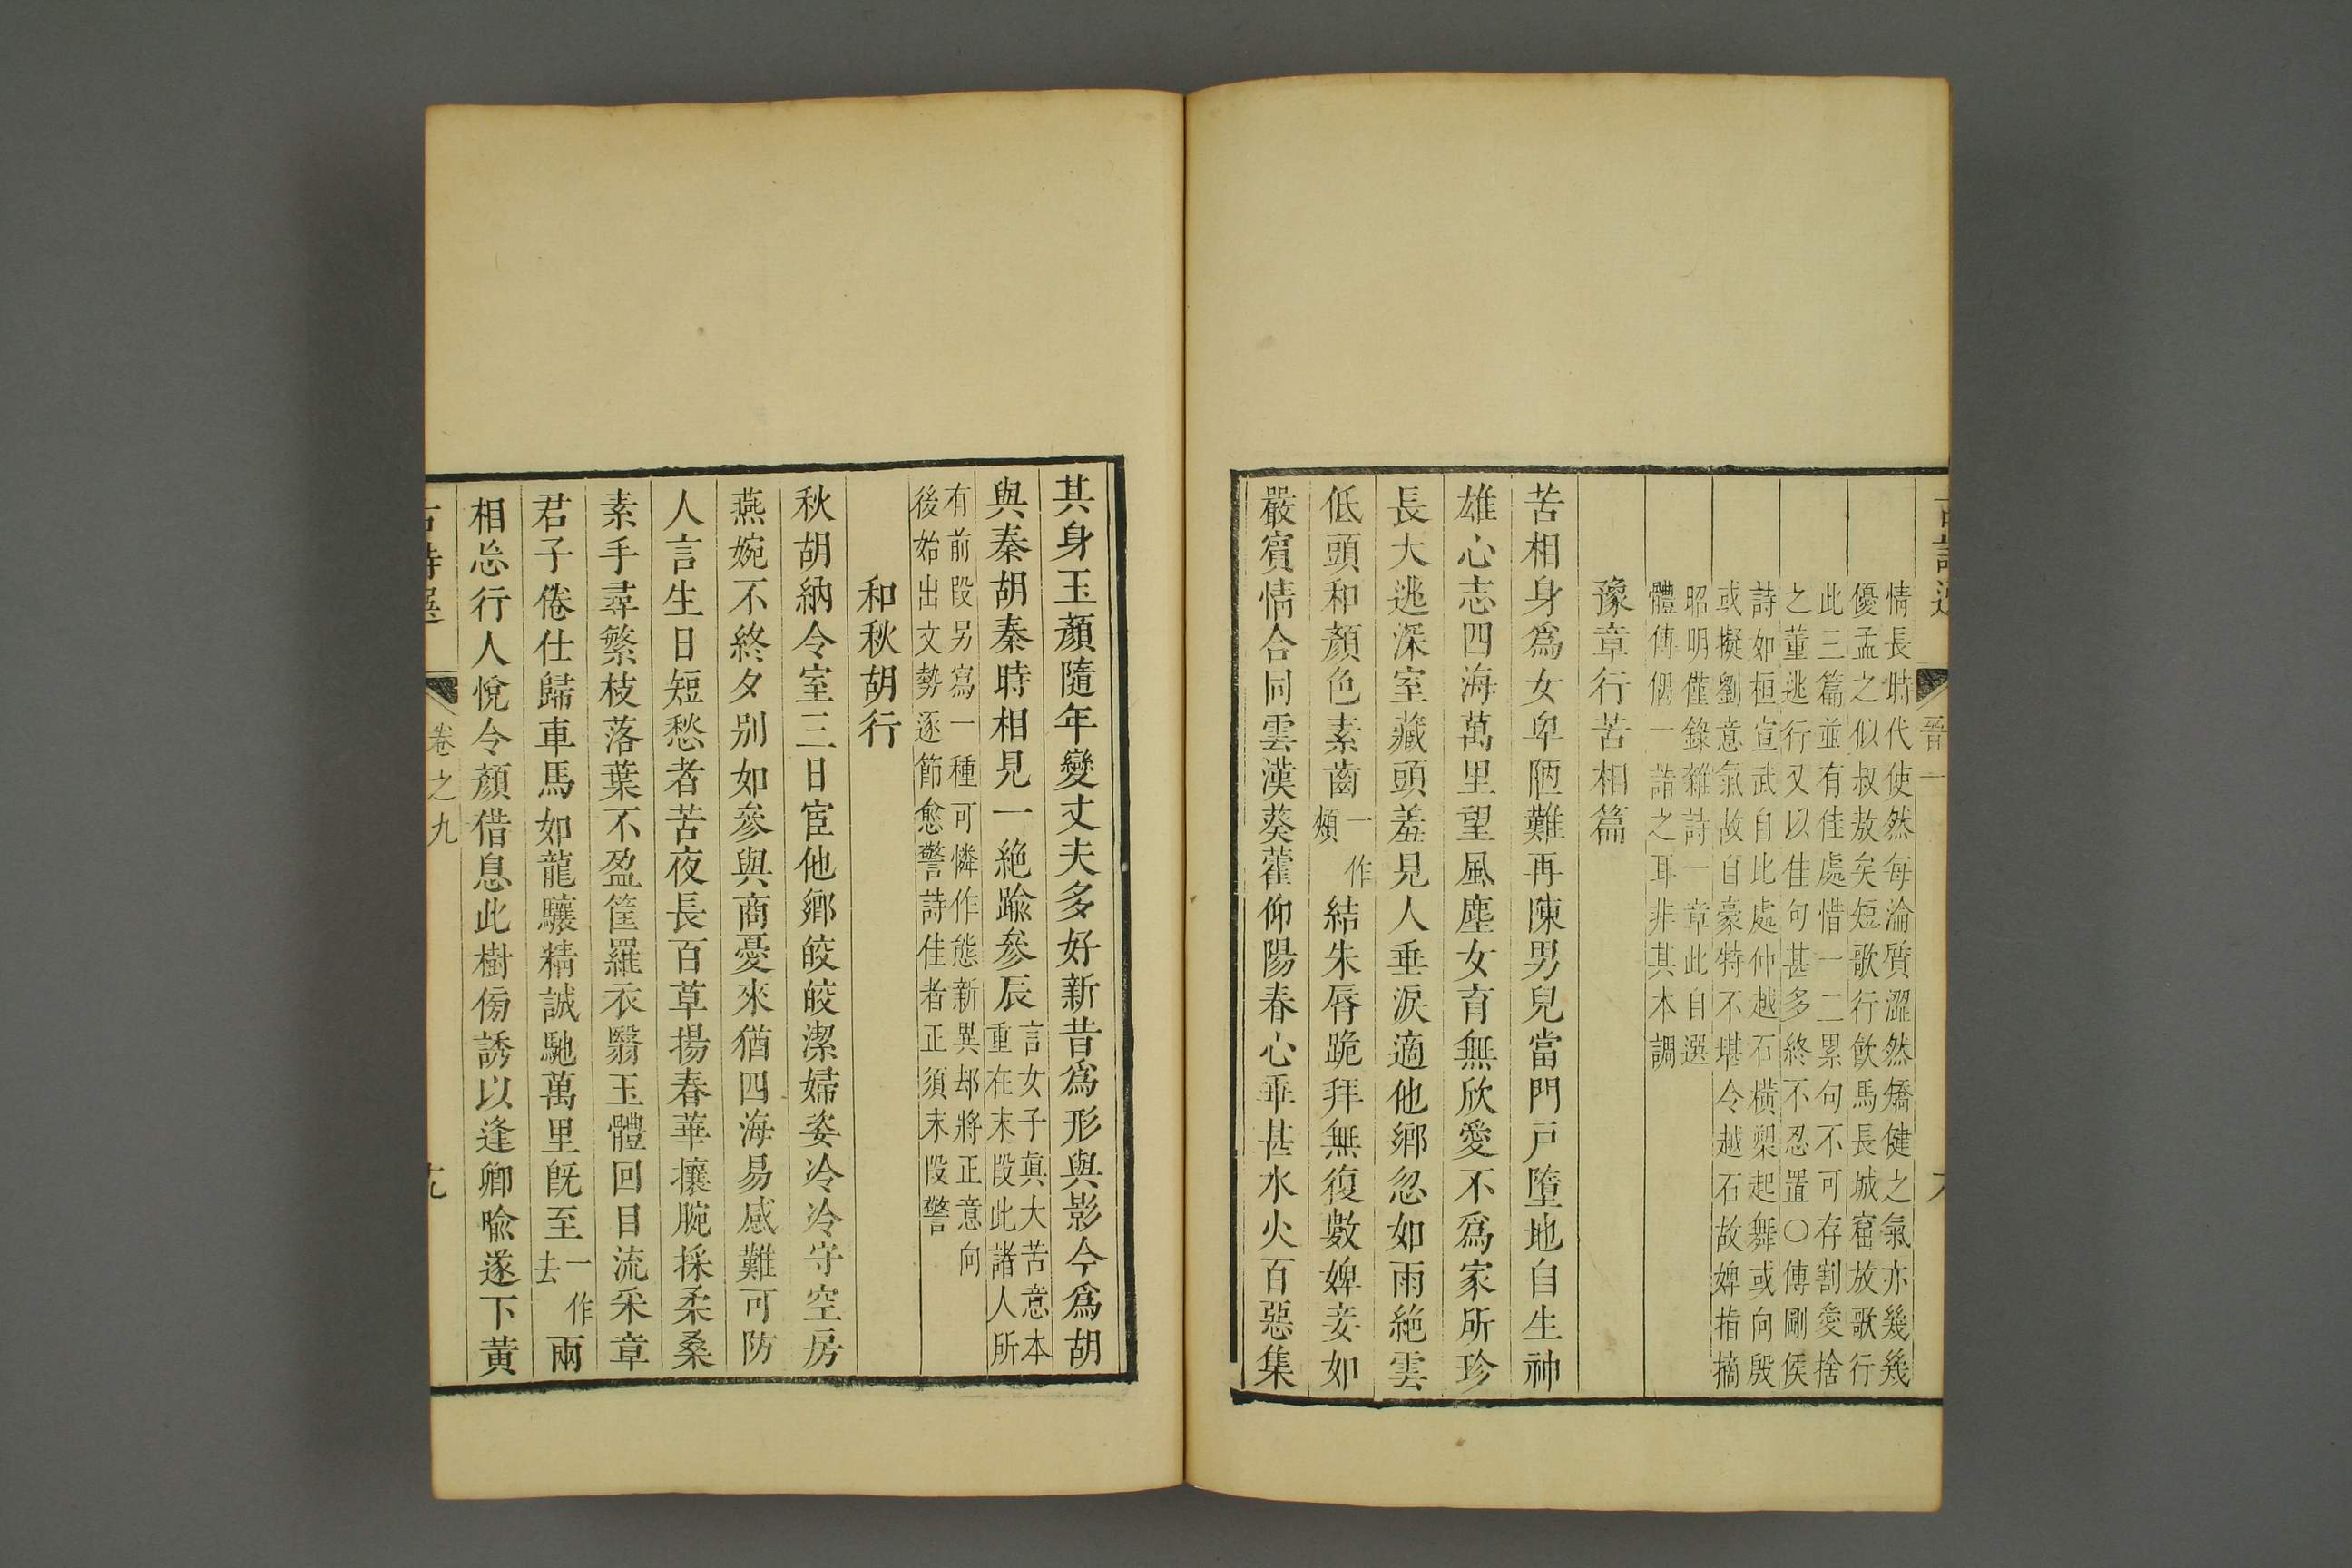 晉一
情長時代使然每淪質澀然矯健之氣亦幾幾
優孟之似叔敖矣短歌行飲馬長城窟放歌行
此三篇並有佳處惜一二累句不可存割愛捨
之董逃行又以佳句甚多終不忍置○傅剛侯
詩如桓宣武自比處仲越石橫槊起舞或向殷
或擬劉意氣故自豪特不堪令越石故婢指摘
昭明僅錄雜詩一章此自選
體傅偶一諧之耳非其本調
豫章行苦相篇
苦相身爲女卑陋難再陳男兒當門戶墮地自生神
雄心志四海萬里望風塵女育無欣愛不爲家所珍
長大逃深室藏頭羞見人垂淚適他鄉忽如雨絶雲
低頭和顏色素齒一作頰結朱脣跪拜無復數婢妾如
嚴賓情合同雲漢葵藿仰陽春心乖甚水火百惡集
其身玉顏隨年變丈夫多好新昔爲形與影今爲胡
與秦胡秦時相見一絶踰參辰言女子眞大苦意本重在末段此諸人所
有前段另寫一種可憐作態新異却將正意向
後始出文勢逐節愈警詩佳者正須末段警
和秋胡行
秋胡納令室三日宦他鄉皎皎潔婦姿冷冷守空房
燕婉不終夕别如參與商憂來猶四海易感難可防
人言生日短愁者苦夜長百草揚春華攘腕採柔桑
素手尋繁枝落葉不盈筐羅衣翳玉體回目流采章
君子倦仕歸車馬如龍驤精誠馳萬里旣至一作去兩
相忘行人悅令顏借息此樹傍誘以逢卿喩遂下黃
古詩選
卷之九